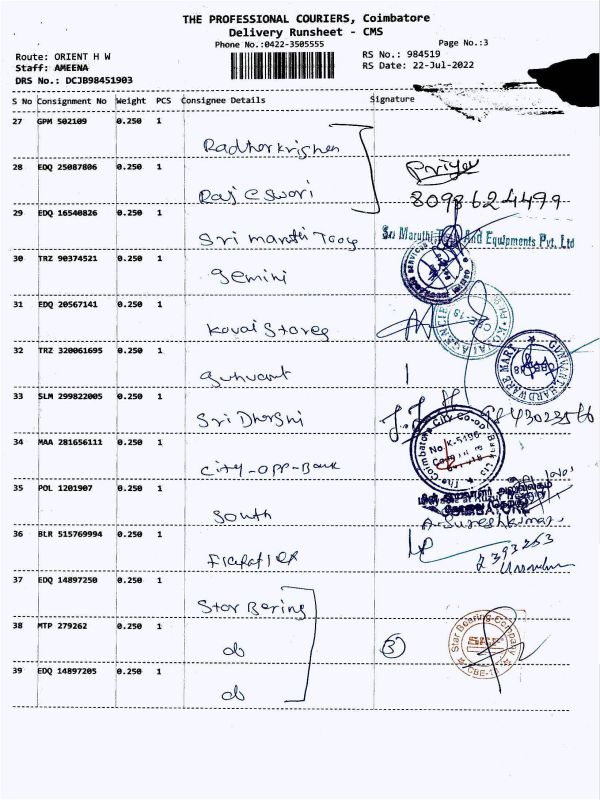 THE PROFESSIONAL COURIERS, Coimbatore
Delivery Runsheet - CMS
Phone No.:0422-3505555
Page No.:3
Route: ORIENT H W
RS No.: 984519
Staff: AMEENA
RS Date: 22-Jul-2022
DRS No.: DCJB98451903
S No Consignment No Weight PCS Consignee Details Signature
27 GPM 502109 0.250 1
Radhakrishnan
28 EDQ 25087806 0.250 1 Priya
Rajeswari 8098624499
29 EDQ 16540826 0.250 1
Sri Maruthi Tools Sri Maruthi And Equipments Pvt. Ltd
30 TRZ 90374521 0.250 1
Gemini
31 EDQ 20567141 0.250 1
Kovai Stores
32 TRZ 320061695 0.250 1
Gunvant GUNWANT HARDWARE MART
33 SLM 299822005 0.250 1
Sri Dharshi
34 MAA 281656111 0.250 1 The Coimbatore City Co-op Bank Ltd
No.K-5196
City-opp-Bank
35 POL 1201907 0.250 1
South COIMBATORE
A. Sureshkumar
36 BLR 515769994 0.250 1
37 EDQ 14897250 0.250 1
Star Bering
38 MTP 279262 0.250 1 Star Bearing Company
do 3 CBE-
39 EDQ 14897205 0.250 1
do